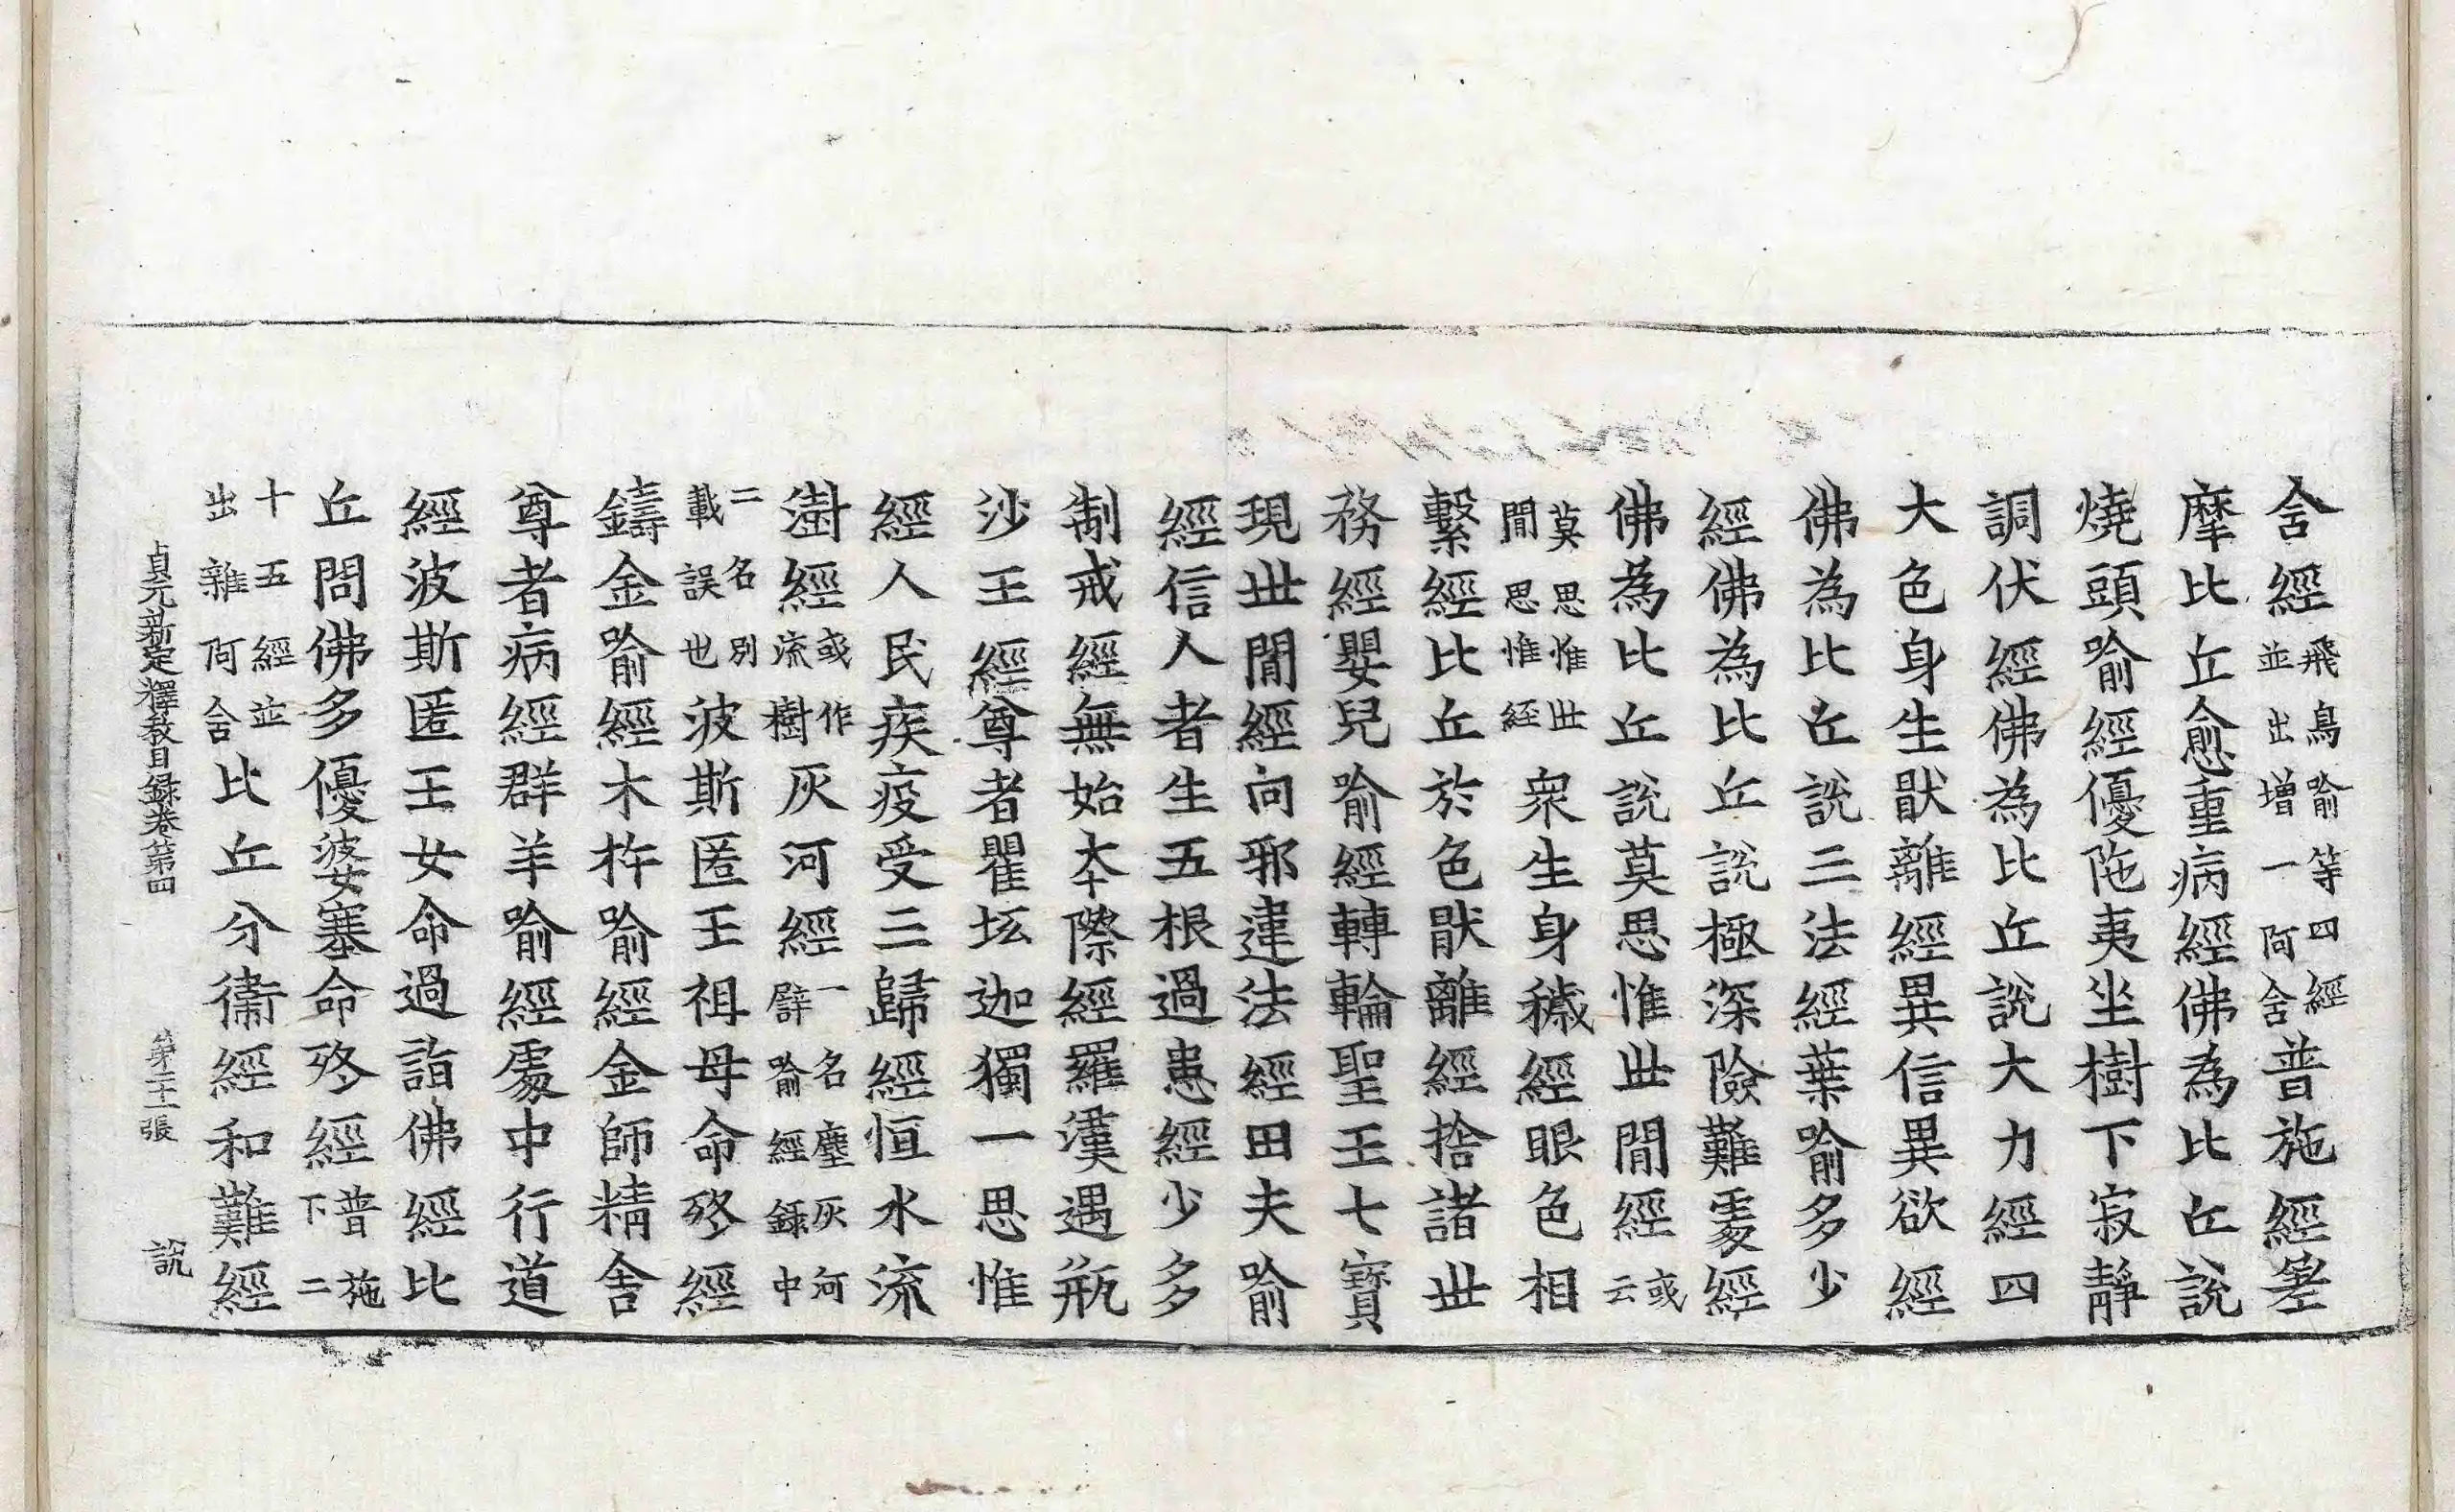 舍經飛鳥喻等四經並出增一阿舍普施經差
摩比丘愈重病經佛為比丘說
燒頭喻經優陁夷坐樹下寂靜
調伏經佛為比丘說大力經四
大色身生猒離經異信異欲經
佛為比丘說三法經葉喻多少
經佛為比丘說極深險難處經
佛為比丘說莫思惟世閒經或云
莫思惟世閒思惟經眾生身穢經眼色相
繫經比丘於色猒離經捨諸世
務經嬰兒喻經轉輪聖王七寶
現世閒經向邪違法經田夫喻
經信人者生五根過患經少多
制戒經無始本際經羅漢遇瓶
沙王經尊者瞿坛迦獨一思惟
經人民疾疫受三歸經恒水流
澍經或作流樹灰河經一名塵灰河譬喻經錄中
二名別載誤也波斯匿王祖母命終經
鑄金喻經木杵喻經金師精舍
尊者病經群羊喻經處中行道
經波斯匿王女命過詣佛經比
丘問佛多優婆塞命終經普施下二
十五經並出雜阿舍比丘分衛經和難經
貞元新定釋教目録卷第四 第二十一張 說